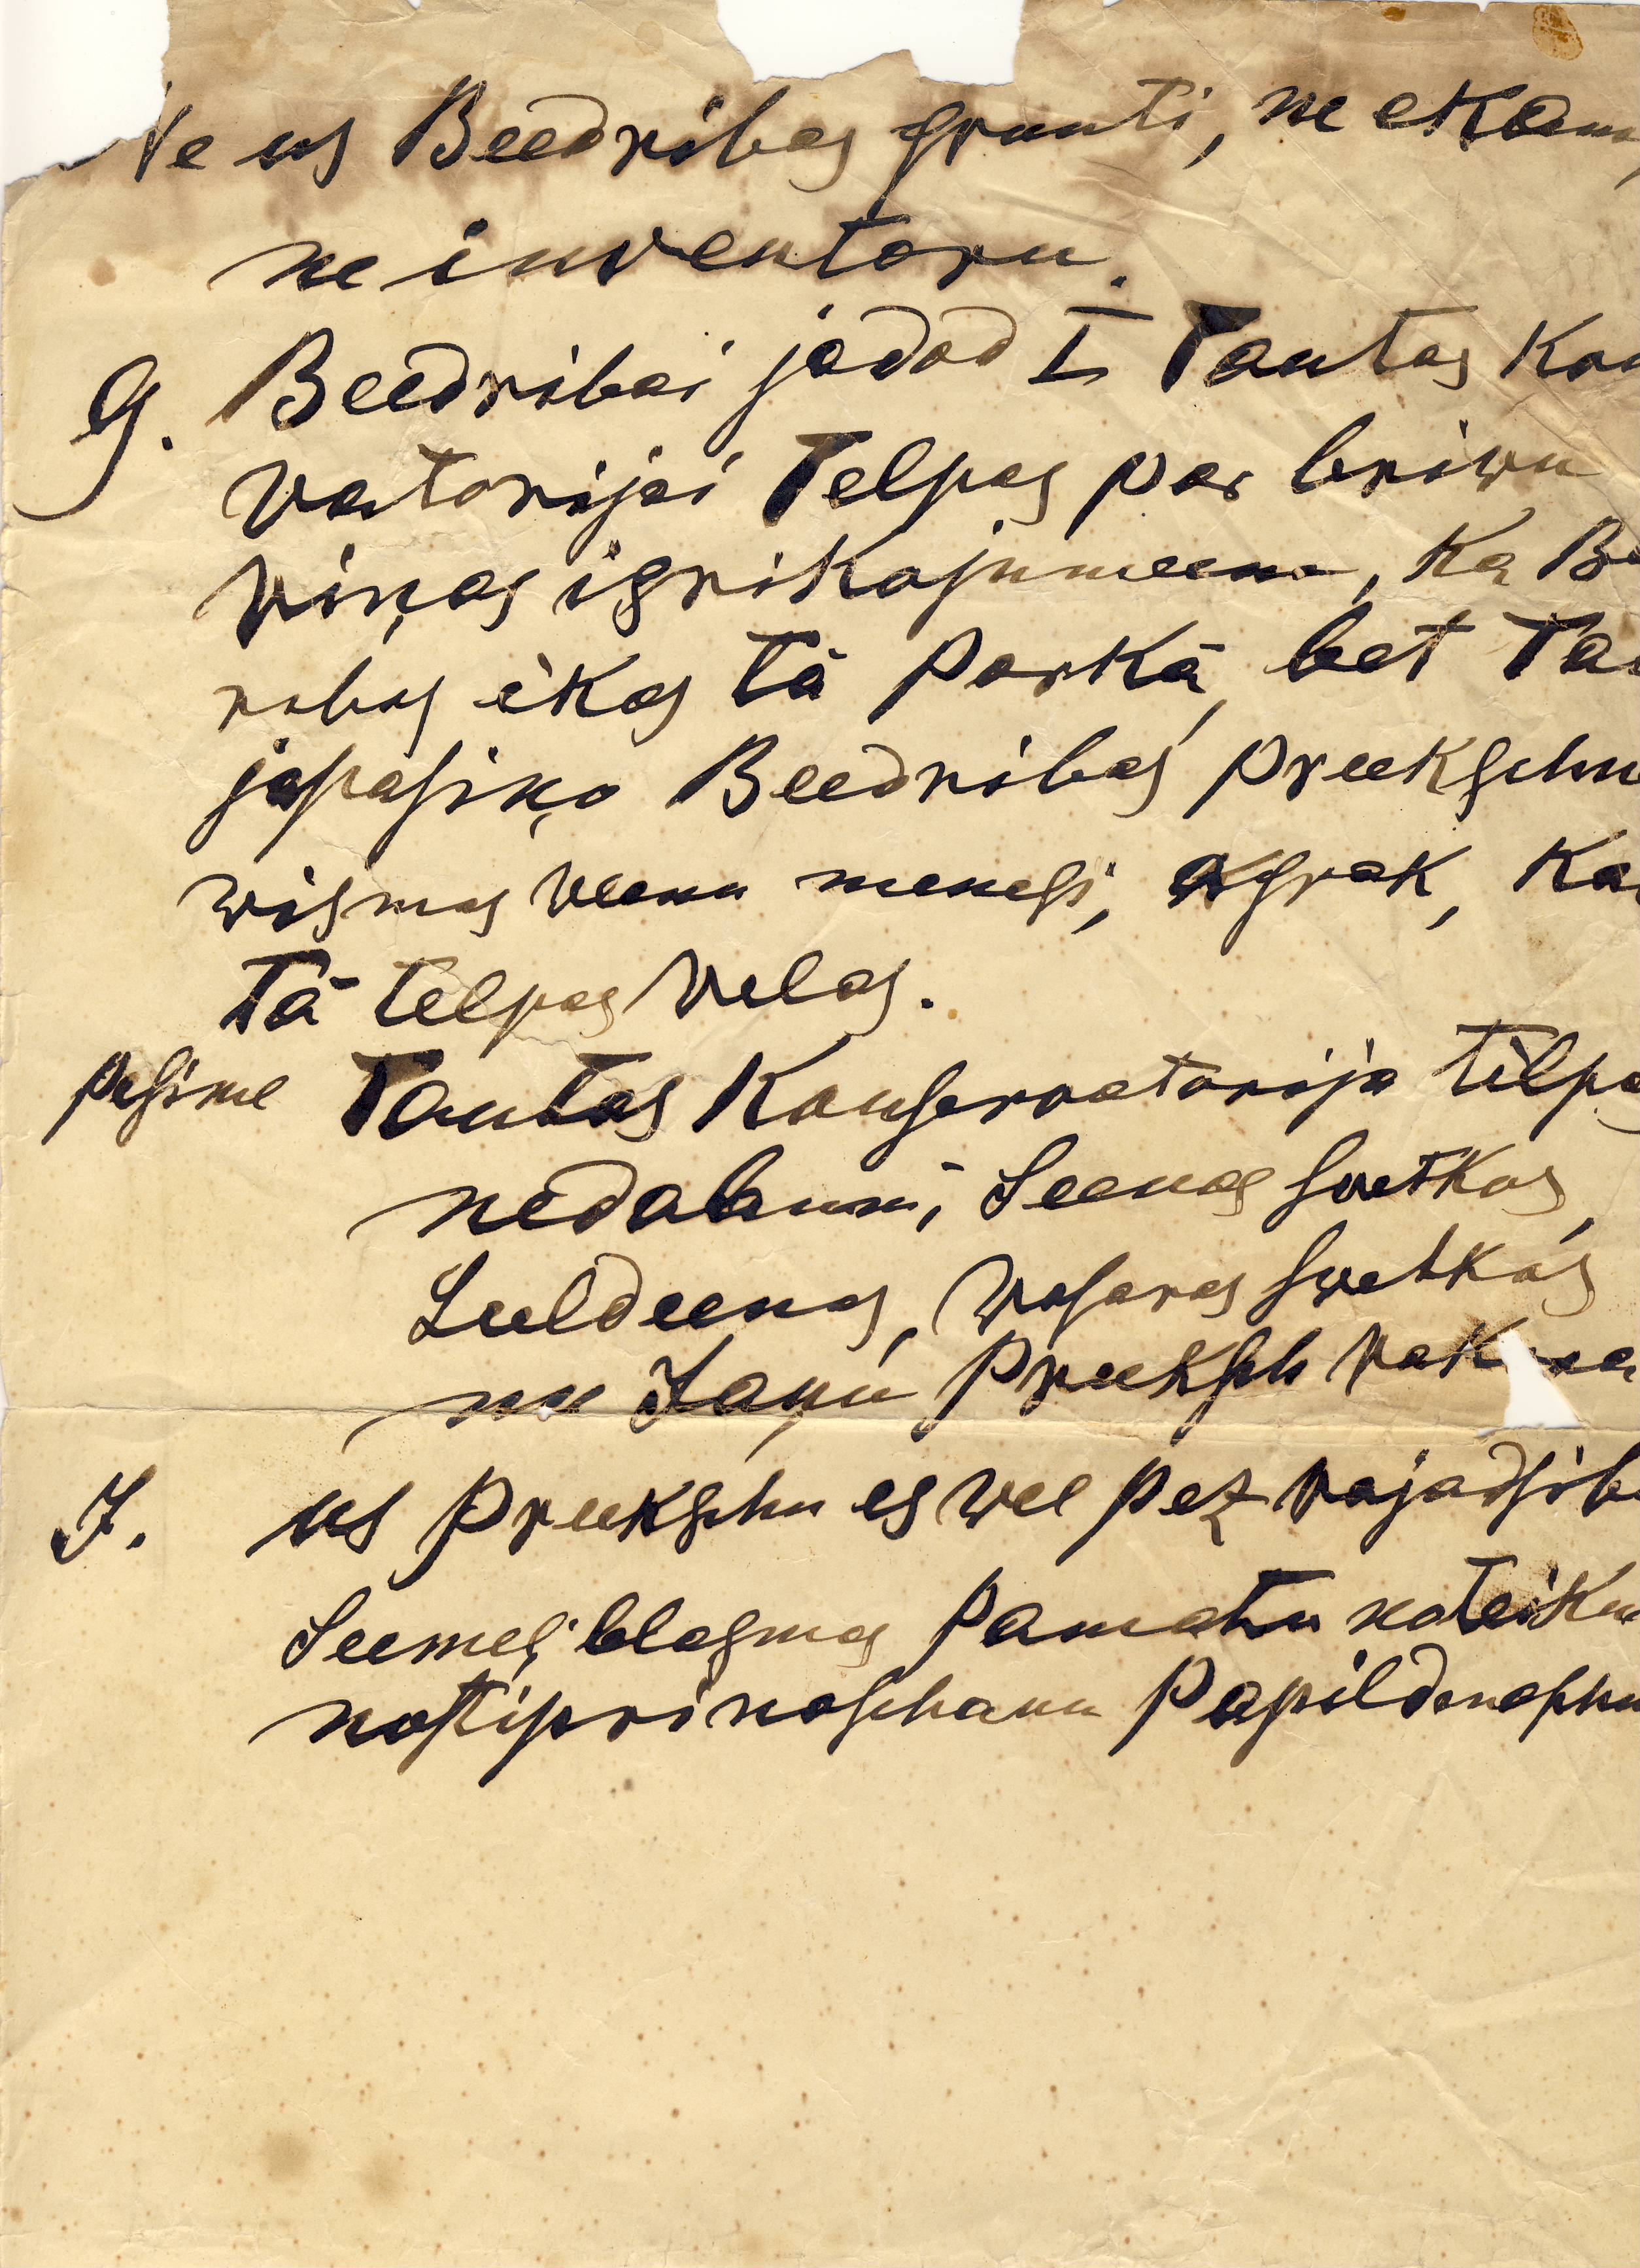 Ne us Beedribas grunti, ne ekam,
ne inventoru.
G. Beedribai jadod I Tautas Kon
vatorijai Telpas par brivu
viņas isrikojumeem, ka Be
ribas ēkas tā Parkā, bet Tau
japasiņo Beedribas preekschn
wismas veenu menesi, agrak, Ka
Tā telpas velas.
pesime Tautas Konservatorija telpas
nedabun, Seemas svetkos,
Leeldeenas, Vasaras svetkós
un Jaņu Preeksch vak
J. us preekschu es vel pez vajadsib
Seemeļblasmas Pamatu noteikum
nostiprinaschanu Papildinaschu